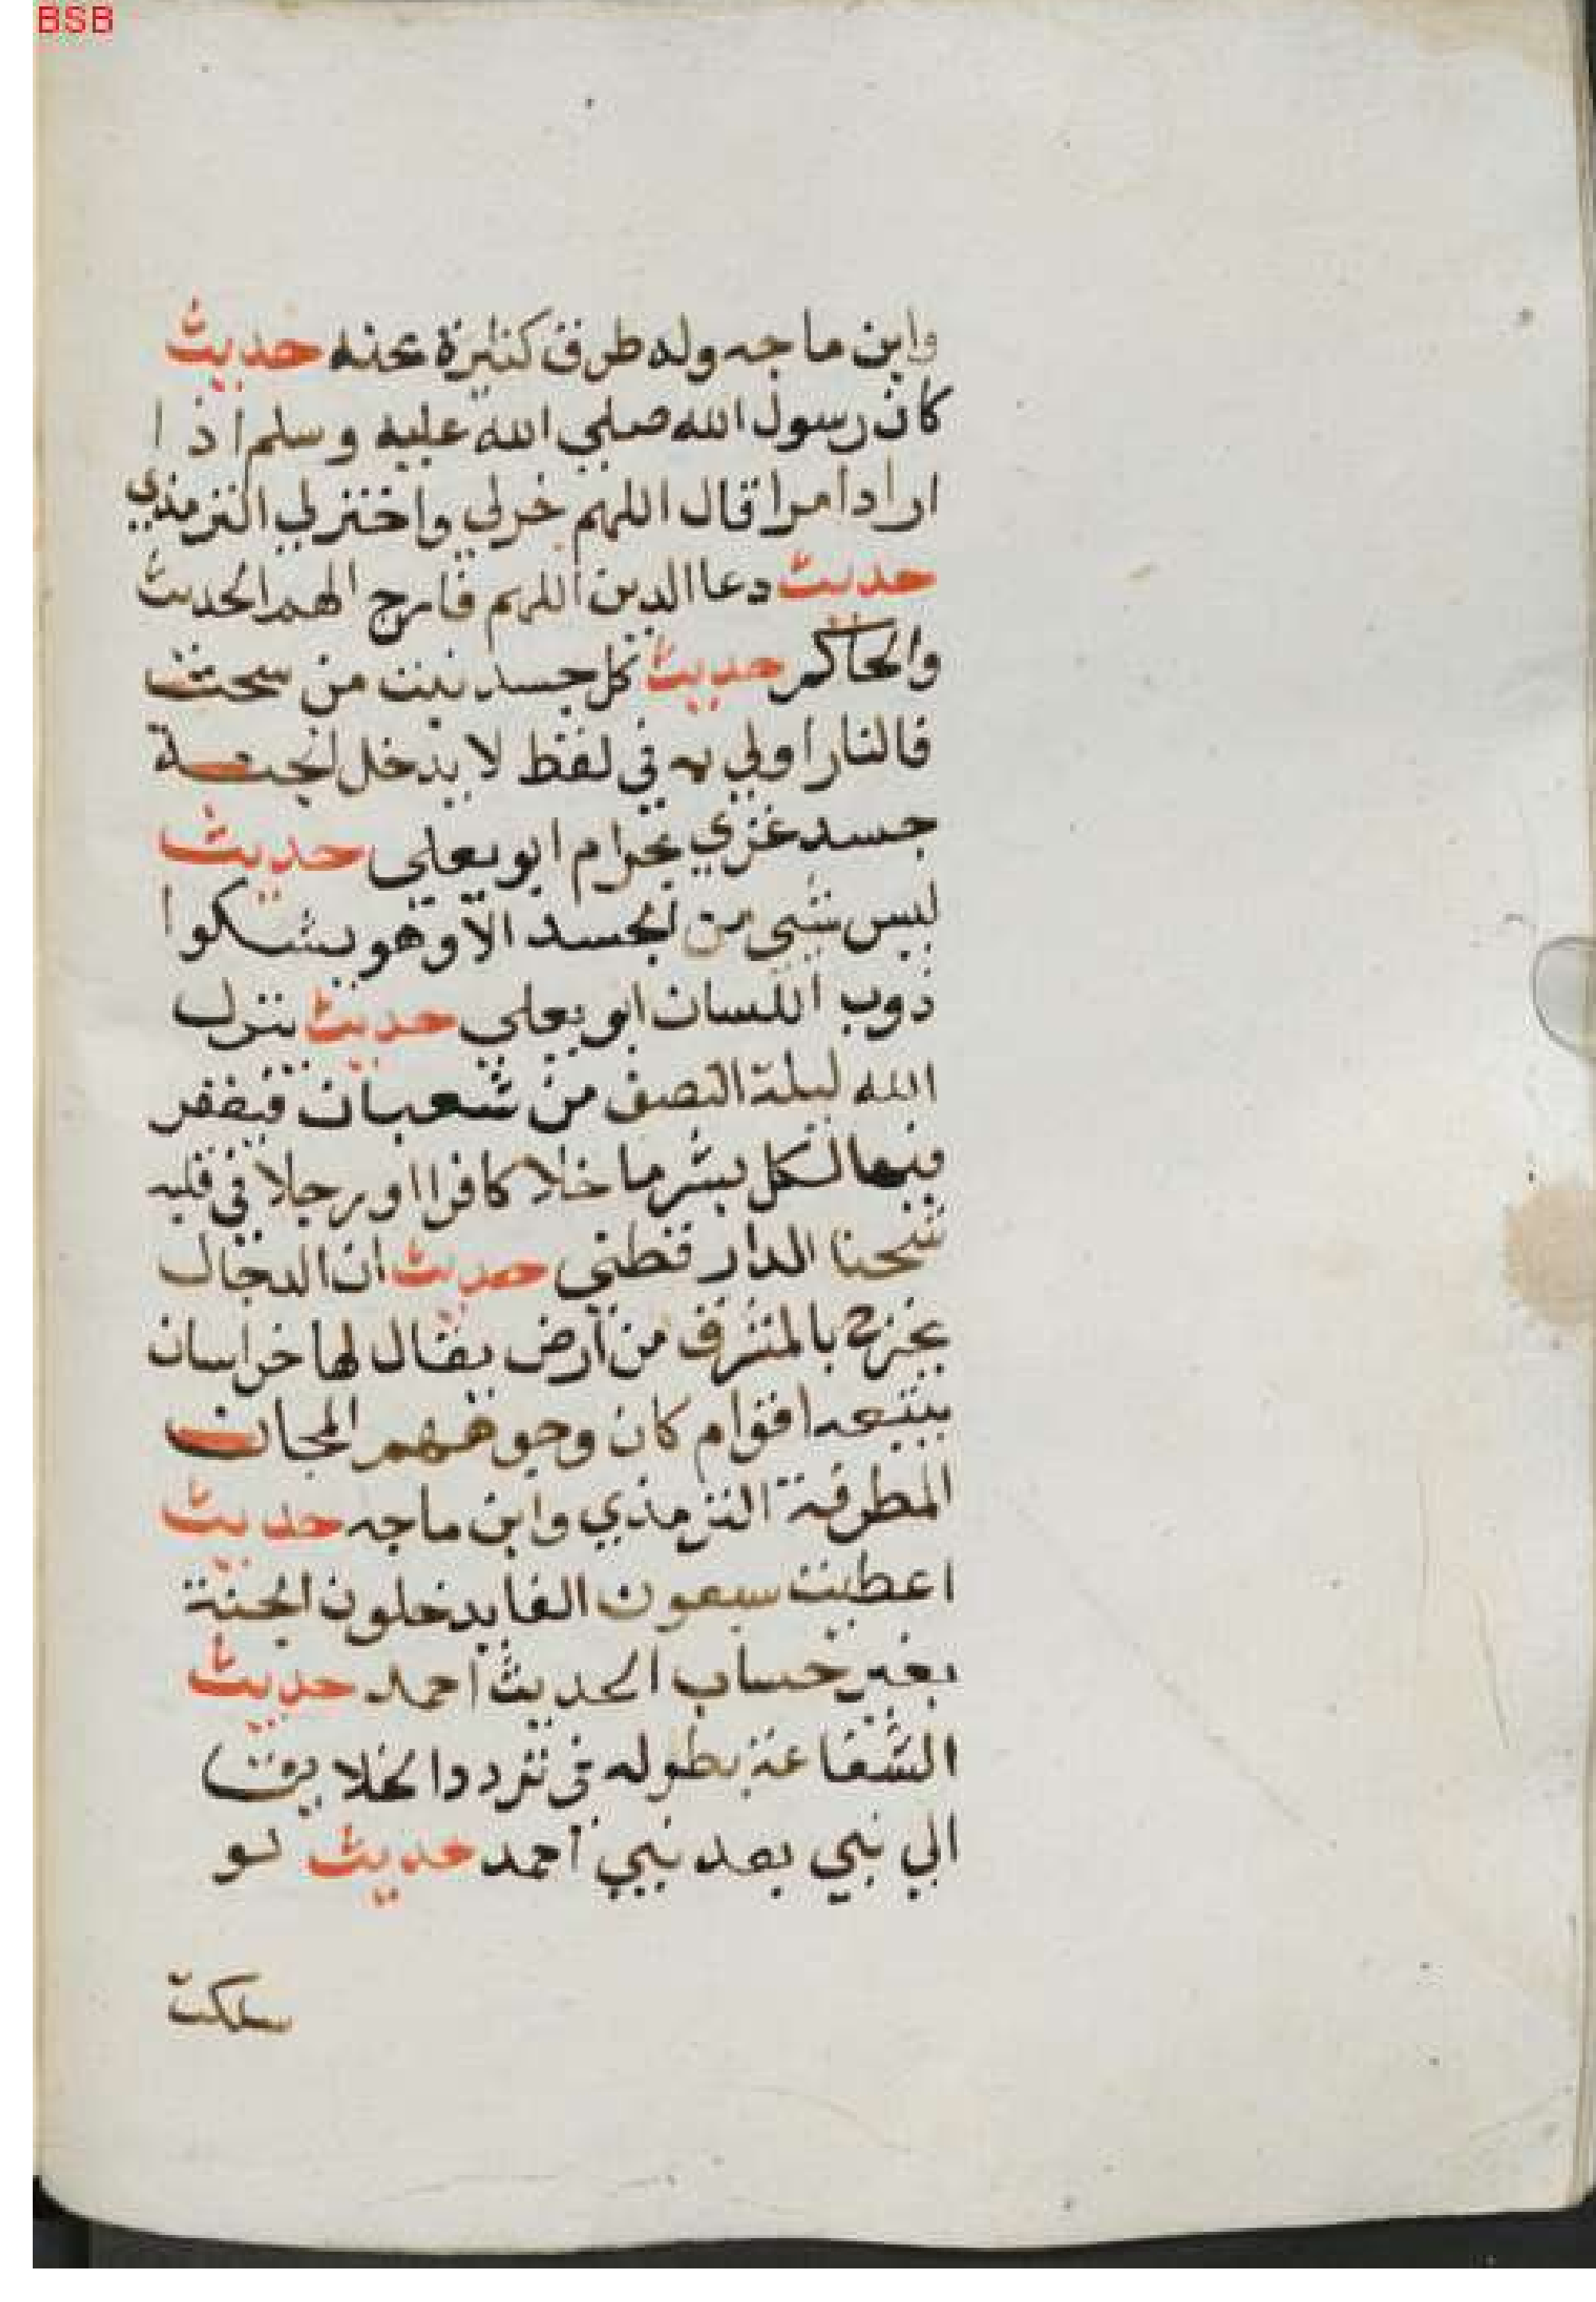 BSB
وابن ماجه وله طرق كثيرة عنه حديث
كان رسول الله صلي الله عليه وسلم اذا
اراد امرا قال اللهم خرلي واخترلي الترمذي
حديث دعا الدين اللهم فارج الهم الحديث
والحاكم حديث كل جسد نبت من سحت
فالنار اولي به في لفظ لا يدخل الجنة
جسد غزي بحرام ابو يعلي حديث
ليس شي من الجسد الا وهو يشكوا
ذوب اللسان ابو يعلي حديث ينزل
الله ليلة النصف من شعبان فيغفر
فيها لكل بشر ما خلا كافرا او رجلا في قلبه
شحنا الدار قطني حديث ان الدجال
يخرج بالمشرق من ارض يقال لها خراسان
يتبعه اقوام كان وجوههم المجان
المطرقة الترمذي وابن ماجه حديث
اعطيت سبعون الفا يدخلون الجنة
بغير حساب الحديث احمد حديث
الشفاعة بطوله في تردد الخلايق
الي نبي بعد نبي احمد حديث لو
سلكت